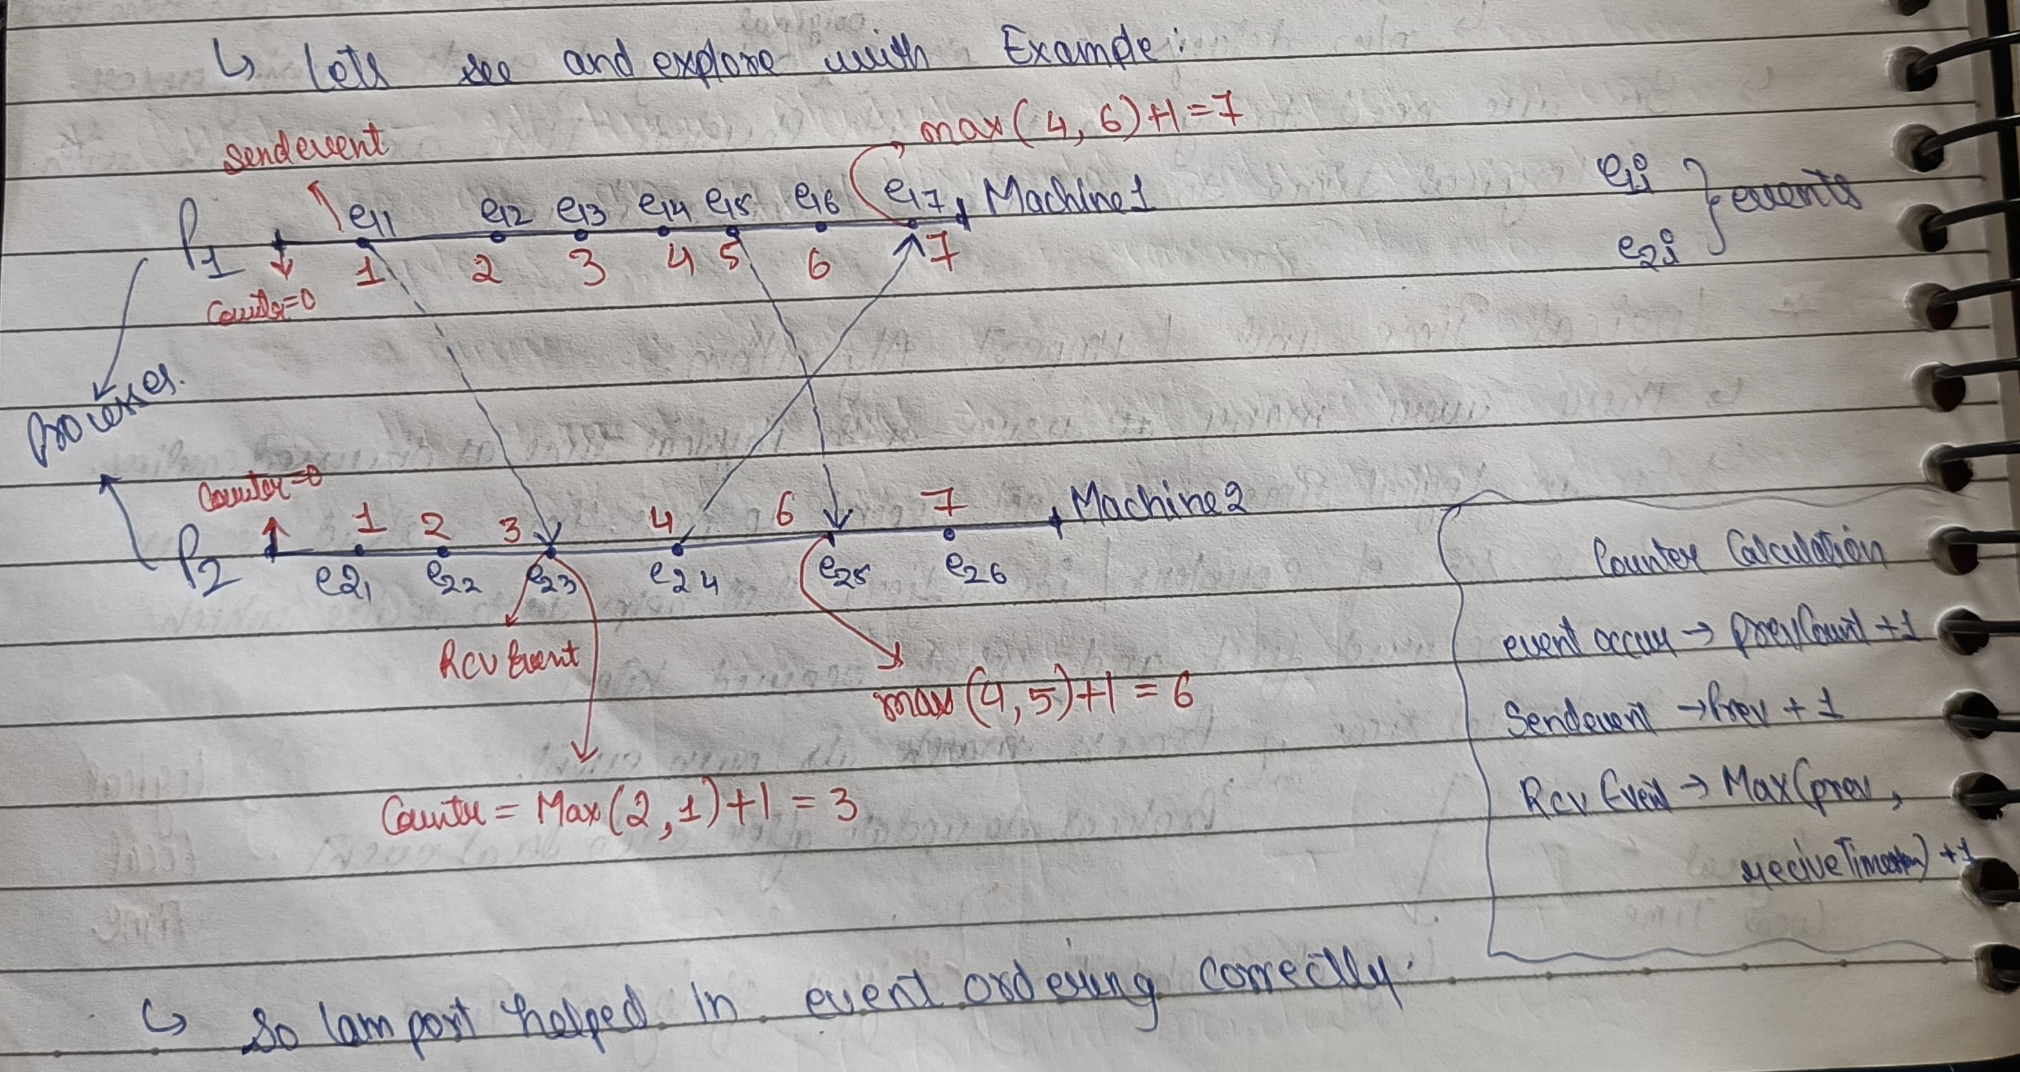 ↳ lets see and explore with Example:
max(4, 6)+1=7
Sendevent
e11 e12 e13 e14 e15 e16 e17 Machine1
P1
1 2 3 4 5 6 7
Counter=0
e1i
e2i } events
Processes.
Counter=0
1 2 3 4 6 7 Machine2
P2
e21 e22 e23 e24 e25 e26
Rcv Event
max(4,5)+1 = 6
Counter = Max(2,1)+1 = 3
Counter Calculation
event occur → prevCount +1
Sendevent → Prev + 1
Rcv Event → Max(prev,
reciveTimestam) +1
↳ So lamport helped in event ordering correctlly.